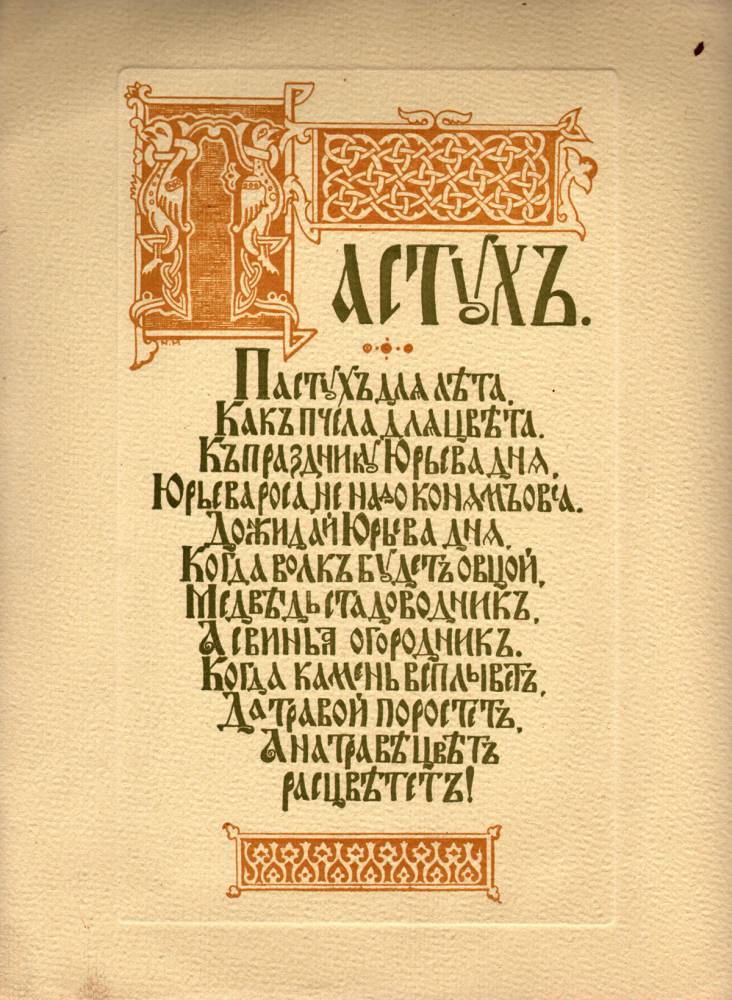 Пастухъ.
Пастухъ для лѣта,
Какъ пчела для цвѣта.
Къ празднику Юрьева дня,
Юрьева роса, не надо конямъ овса.
Дожидай Юрьева дня,
Когда волкъ будетъ овцой,
Медвѣдь стадоводникъ,
А свинья огородникъ.
Когда камень всплыветъ,
Да травой поростетъ,
А на травѣ цвѣтъ
расцвѣтетъ!